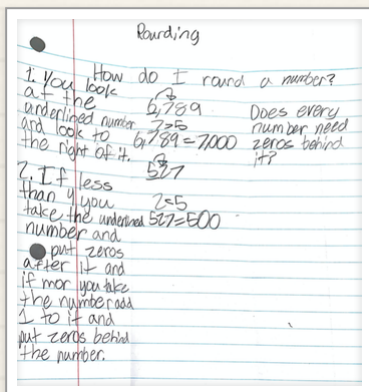 Rounding
How do I round a number?
1. You look
at the
underlined number
and look to
the right of it.
6,789
7>5
6,789=7,000
Does every
number need
zeros behind
it?
2. If less
than 4 you
take the underlined
number and
put zeros
after it and
if mor you take
the number add
1 to it and
put zeros behind
the number.
527
2<5
527=500